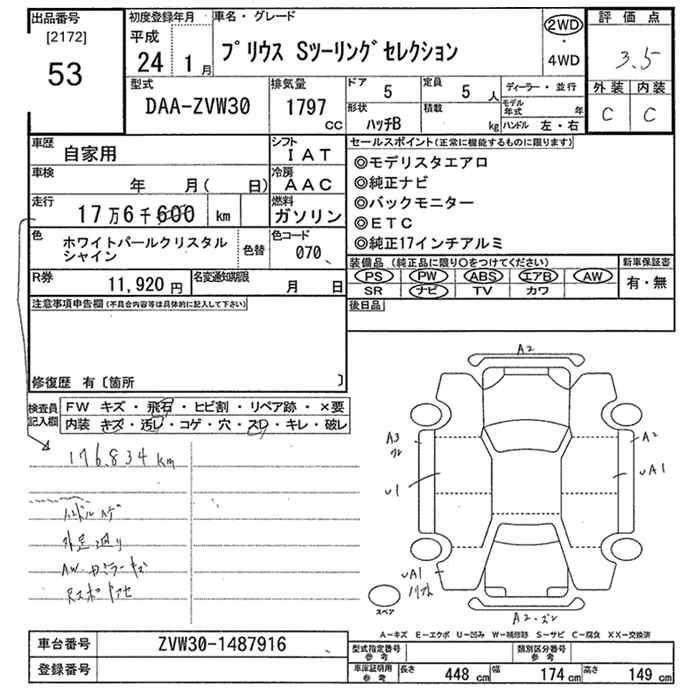 出品番号
[2172]
53
初度登録年月
平成
24 1月
車名・グレード
プリウス Sツーリングセレクション
2WD
・
4WD
評価点
3.5
外装 内装
C C
型式
DAA-ZVW30
排気量
1797
CC
ドア 5
定員 5 人
形状 ハッチB
積載 kg
ディーラー・並行
モデル年式 年
ハンドル 左・右
車歴 自家用
シフト IAT
車検 年 月( 日)
冷房 AAC
走行 17万6千600 km
燃料 ガソリン
色 ホワイトパールクリスタルシャイン
色替
色コード 070
R券 11,920円
名変通知期限 月 日
セールスポイント(正常に機能するものに限ります)
◎モデリスタエアロ
◎純正ナビ
◎バックモニター
◎ETC
◎純正17インチアルミ
装備品(純正品に限り○をつけてください)
PS PW ABS エアB AW
SR ナビ TV カワ
新車保証書
有・無
後日品
注意事項申告欄(不具合内容等は具体的に記入して下さい)
修復歴 有〔箇所 〕
検査員記入欄
FW キズ・飛石・ヒビ割・リペア跡・×要
内装 キズ・汚レ・コゲ・穴・スレ・キレ・破レ
176.834km
ハンドルハゲ
外足廻り
AW
A2
A3
A2
U1
UA1
UA1
スペア
A2
A-キズ E-エクボ U-凹み W-補修跡 S-サビ C-腐食 XX-交換済
車台番号 ZVW30-1487916
登録番号
型式指定番号 参考
類別区分番号 参考
車庫証明用 参考
長さ 448cm 幅 174cm 高さ 149cm